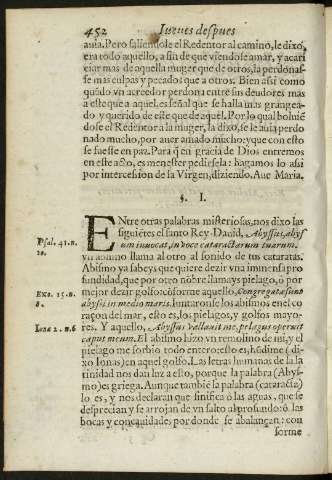 452 Iueues despues
auia. Pero saliendole el Redentor al camino, le dixo,
era todo aquello, a fin de que viendose amar, y acari
ciar mas de aquella muger que de otros, la perdonas-
se mas culpas y pecados que a otros. Bien assi como
quãdo vn acreedor perdona entre sus deudores mas
a este que a aquel, es señal que se halla mas grangea-
do y querido de este que de aquel. Por lo qual boluiẽ
dose el Redentor a la muger, la dixo, se le auia perdo
nado mucho, por auer amado mucho: y que con esto
se fuesse en paz. Para q̃ en gracia de Dios entremos
en este acto, es menester pedirsela: hagamos lo assi
por intercession de la Virgen, diziendo. Aue Maria.
§. I.
ENtre otras palabras misteriosas, nos dixo las
siguiẽtes el santo Rey Dauid, Abyssus, abys
Psal. 41. n.
um inuocat, in voce cataractarum tuarum.
vn abismo llama al otro al sonido de tus cataratas.
Abismo ya sabeys que quiere dezir vna inmensa pro
fundidad, que por otro nõbre llamays pielago, ò por
mejor dezir golfo: cõforme aquello, Congregatæ sunt
Exo. 15. n.
8.
abyssi in medio maris. Iuntaronse los abismos en el co
raçon del mar, esto es, los pielagos, y golfos mayo-
res. Y aquello, Abyssus vallauit me, pelagus operuit
Ionæ 2. n. 6
caput meum. El abismo hizo vn remolino de mi, y el
pielago me sorbio todo entero: esto es, hõdime (di-
xo Ionas) en aquel golfo. Las letras humanas de la la
tinidad nos dan luz a esto, porque la palabra (Abys-
mo) es griega. Aunque tambiẽ la palabra (cataracta)
lo es, y nos declaran que sinifica ò las aguas, que se
desprecian y se arrojan de vn salto al profundo: ò las
bocas y concauidades por donde se abalançan: con
forme